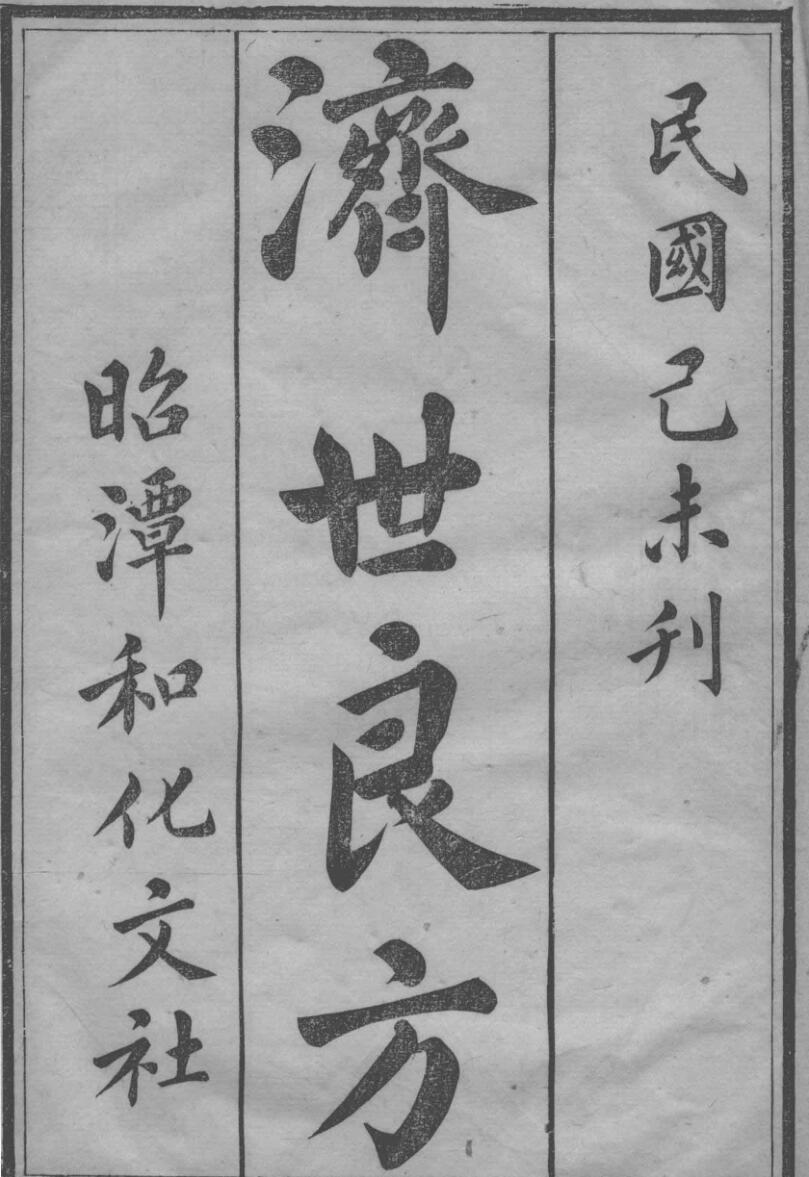 民國己未刊
濟世良方
昭潭和化文社